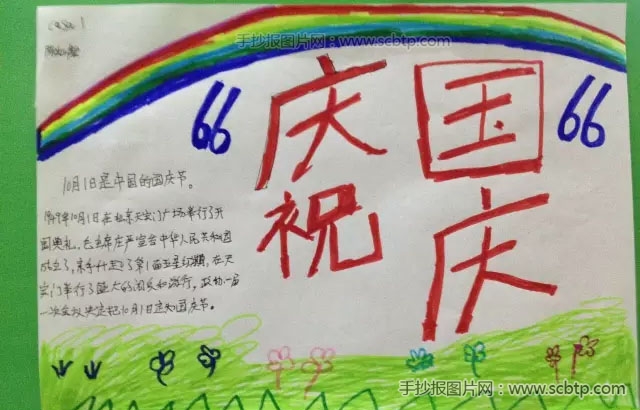 手抄报图片网：www.scbtp.com
66
庆祝
国庆
66
10月1日是中国的国庆节。
1949年10月1日在北京天安门广场举行了开
国典礼，毛主席庄严宣告中华人民共和国
成立了，亲手升起了第1面五星红旗，在天
安门举行了盛大的阅兵和游行，政协一届
一次会议决定把10月1日定为国庆节。
手抄报图片网：www.scbtp.com